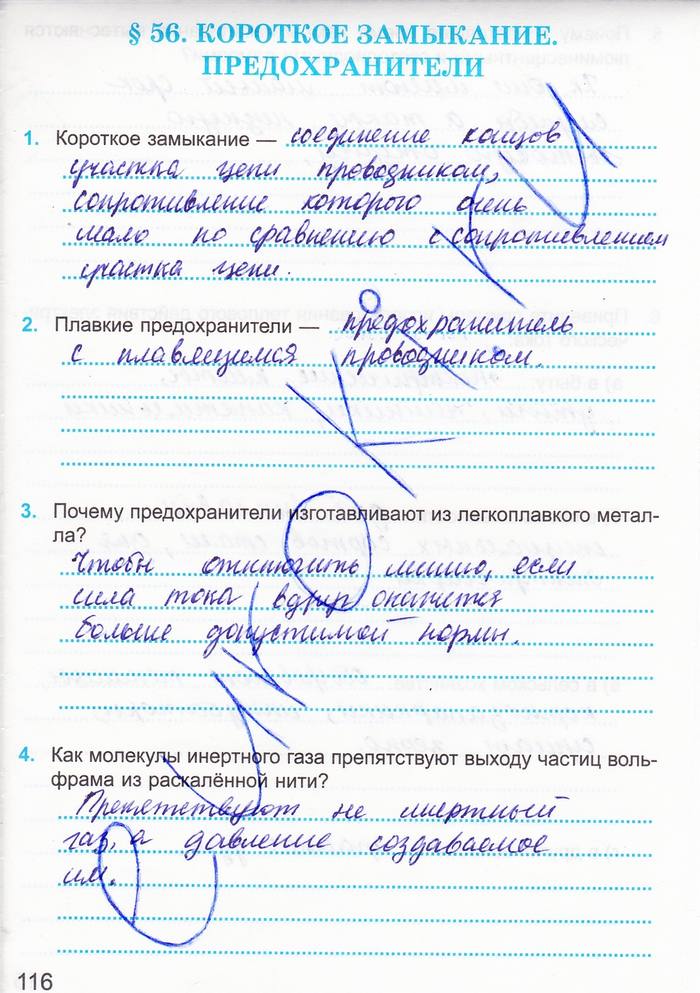 § 56. КОРОТКОЕ ЗАМЫКАНИЕ.
ПРЕДОХРАНИТЕЛИ
1. Короткое замыкание — соединение концов
участка цепи проводником,
сопротивление которого очень
мало по сравнению с сопротивлением
участка цепи.
2. Плавкие предохранители — предохранитель
с плавящимся проводником.
3. Почему предохранители изготавливают из легкоплавкого метал-
ла?
Чтобы отключить линию, если
сила тока вдруг окажется
больше допустимой нормы.
4. Как молекулы инертного газа препятствуют выходу частиц воль-
фрама из раскалённой нити?
Препятствуют не инертный
газ, а давление создаваемое
им.
116